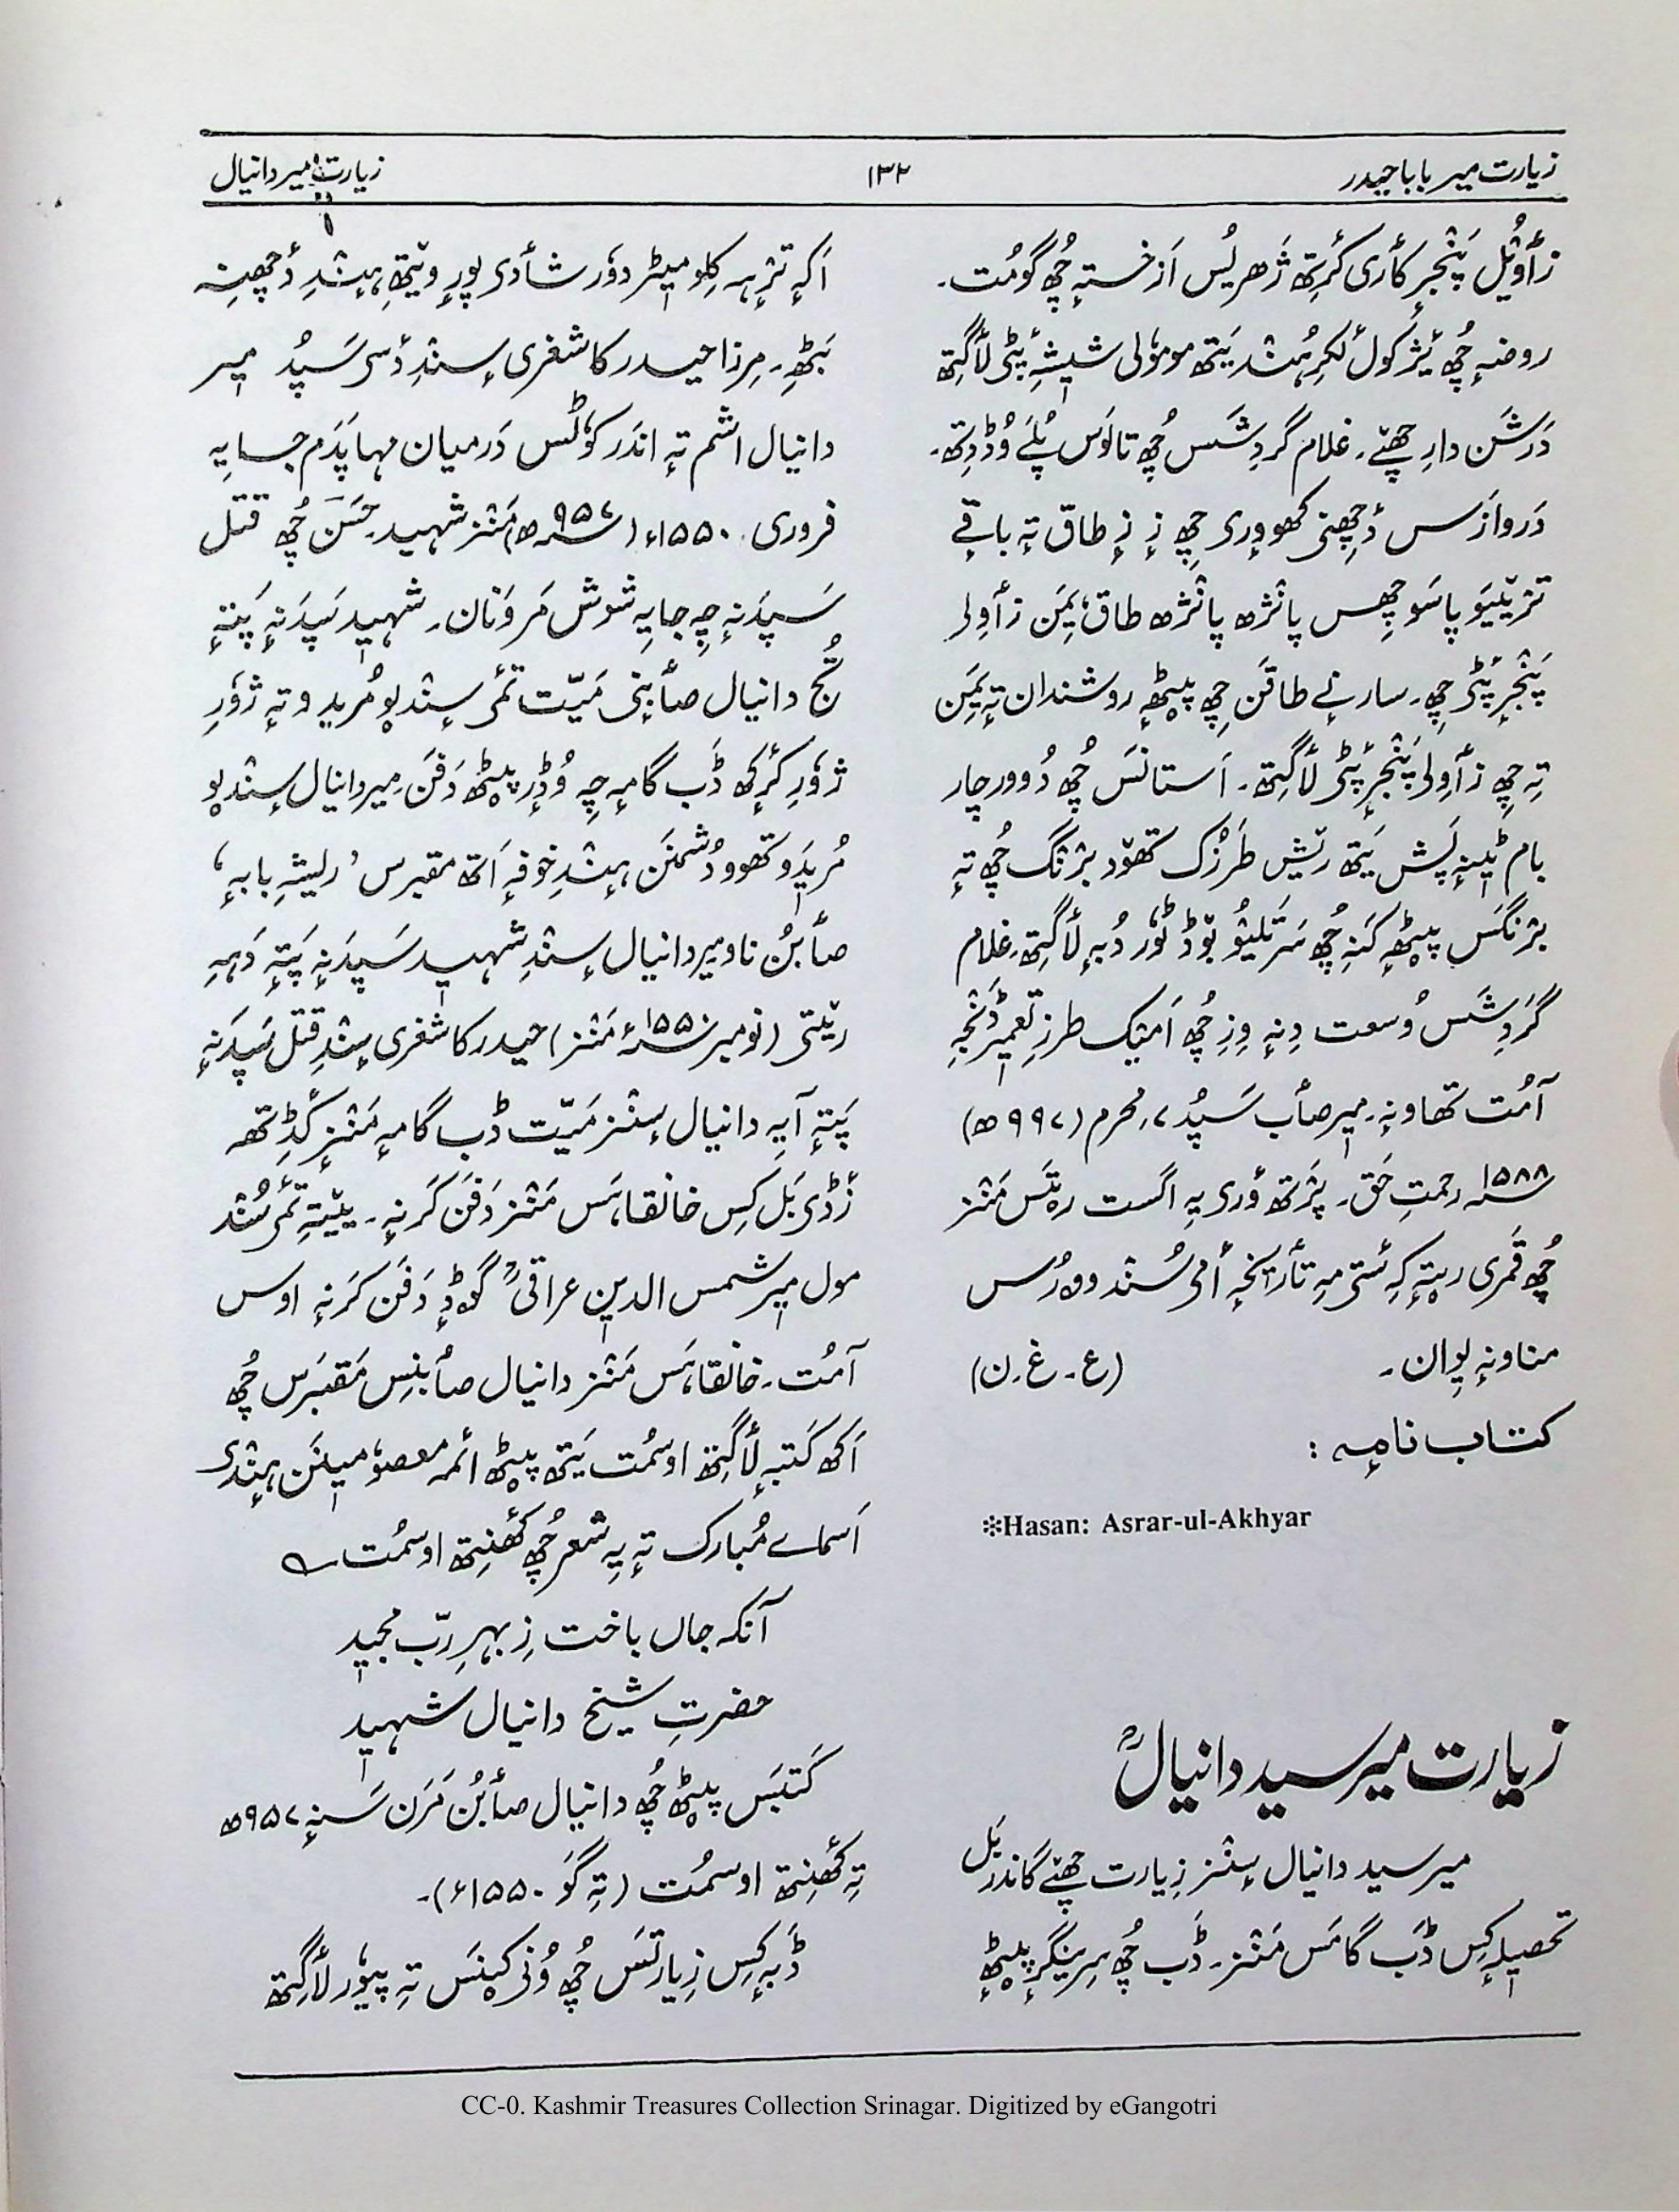 زیارت میر بابا حیدر
۱۳۲
زیارت میر دانیال
زٲوٕیُل پَنٛجرٕ کٲری کٔرِتھ ژٔھریُس اَز خستہٕ چُھ گومُت۔
روضہٕ چُھ یَژ کول لٔکرِ ہُنٛد یَتھ مومولی شیشہٕ پٔٹی لٲگتھ
دَرشَن دارِ چھےٚ۔ غلام گردِشَس چُھ تالَوس پُلے وُڈ دِتھ۔
دَروازَس دٔچھِنی کھوورِی چِھ زٕ زٕ طاق تہٕ باقے
ترٛیٚیَو پاسَو چِھس پانٛژھ پانٛژھ طاق؛ یِمَن زٲوِلی
پَنٛجرٕ پٔٹی چِھ۔ سارنےٚ طاقَن چِھ پیٚٹھہٕ روشندان تہٕ یِمَن
تہِ چِھ زٲوِلی پَنٛجرٕ پٔٹی لٲگتھ۔ اَستانَس چُھ دُوور چار
بام ٹیٖنہٕ پَش یَتھ ریٚش طَرزُک تھوٚد برٛنٛگ چُھ تہٕ
برٛنٛگَس پیٚٹھہٕ کَنہِ چُھ سَرتَلیُو بوٚڈ ٹوٗر دُبہٕ لٲگتھ۔ غلام
گَردِشَس وُسعت دِنہٕ وِزِ چُھ اَمیُک طرزِ تعمیٖر دَنٛجہِ
آمُت تھاونہٕ۔ میٖر صٲب سَپُد ۷ محرم (۹۹۷ھ)
۱۵۸۸ء رحمتِ حَق۔ پرٛتھ وٕری یہِ اگست رہتَس مَنٛز
چُھ قَمری ریتہٕ کِہ ستِی مہِ تٲریخہٕ أمی سُنٛد ووٗرُس
مناونہٕ یِوان۔ (ع۔ غ۔ ن)
کتاب نامہٕ :
*Hasan: Asrar-ul-Akhyar
زیارت میر سید دانیالؒ
میر سید دانیال سِنٛز زِیارت چھےٚ گاندربَل
تحصیلہٕ کِس ڈَب گامَس مَنٛز۔ ڈَب چُھ سرینگرٕ پیٚٹھہٕ
اَکہِ ترٛہہ کِلو میٖٹر دوٗر شٲدی پورٕ ویتھِ ہِنٛدِ دٔچھِنہِ
بَٹھِ۔ مِرزا حیدر کاشغری سِنٛدِ دٔسی سَپُد میٖر
دانیال اشم تہٕ اندَر کوٗٹس دَرمیان مہاپَدَم جایہِ
فروری ۱۵۵۰ء (۹۵۷ھ) مَنٛز شہید۔ حَسَن چُھ قتل
سَپدَنہٕ چہِ جایہِ شوش مَر وَنان۔ شہید سَپدَنہٕ پَتہٕ
تُج دانیال صٲبنی مَیّت تٔمی سِنٛدیو مُریدو تہٕ ژوٗرِ
ژوٗرِ کٔرٕکھ ڈَب گامہٕ چہِ وُڈرِ پیٚٹھ دَفَن۔ میر دانیال سِنٛدیو
مُریدَو تھوو دُشمنَن ہِنٛدِ خوفہٕ اَتھ مقبرس 'ریشہٕ بابہٕ'
صٲبُن ناو میر دانیال سِنٛدِ شہید سَپدَنہٕ پَتہٕ دَہہِ
ریٚتی (نومبر ۱۵۵۰ء مَنٛز) حیدر کاشغری سِنٛدِ قتل سَپدَنہٕ
پَتہٕ آیہِ دانیال سِنٛز مَیّت ڈب گامہٕ مَنٛزٕ کٔڈتھ
زٔڈی بَل کِس خانقاہَس مَنٛز دَفَن کَرنہٕ۔ ییٚتہِ تٔمی سُنٛد
مول میٖر شمس الدین عراقیؒ گوڈٕ دَفَن کَرنہٕ اوس
آمُت۔ خانقاہَس مَنٛز دانیال صٲبنِس مَقبَرس چُھ
اَکھ کَتبہٕ لٲگتھ اوسمُت یَتھ پیٚٹھ ائمہ معصوٗمیٖنَن ہِنٛدی
اَسماے مُبارک تہٕ یہِ شعر چُھ کھٔنِتھ اوسمُت ؎
آنکہ جاں باخت زِ بہرِ ربّ مجید
حضرتِ شیخ دانیال شہید
کَتبَس پیٚٹھ چُھ دانیال صٲبُن مَرَن سَنہٕ ۹۵۷ھ
تہِ کھٔنِتھ اوسمُت (تہِ گوٚ ۱۵۵۰ء)۔
ڈَبہٕ کِس زِیارتَس چُھ وُنی کیٚنَس تہِ پیوٗر لٲگتھ
CC-0. Kashmir Treasures Collection Srinagar. Digitized by eGangotri